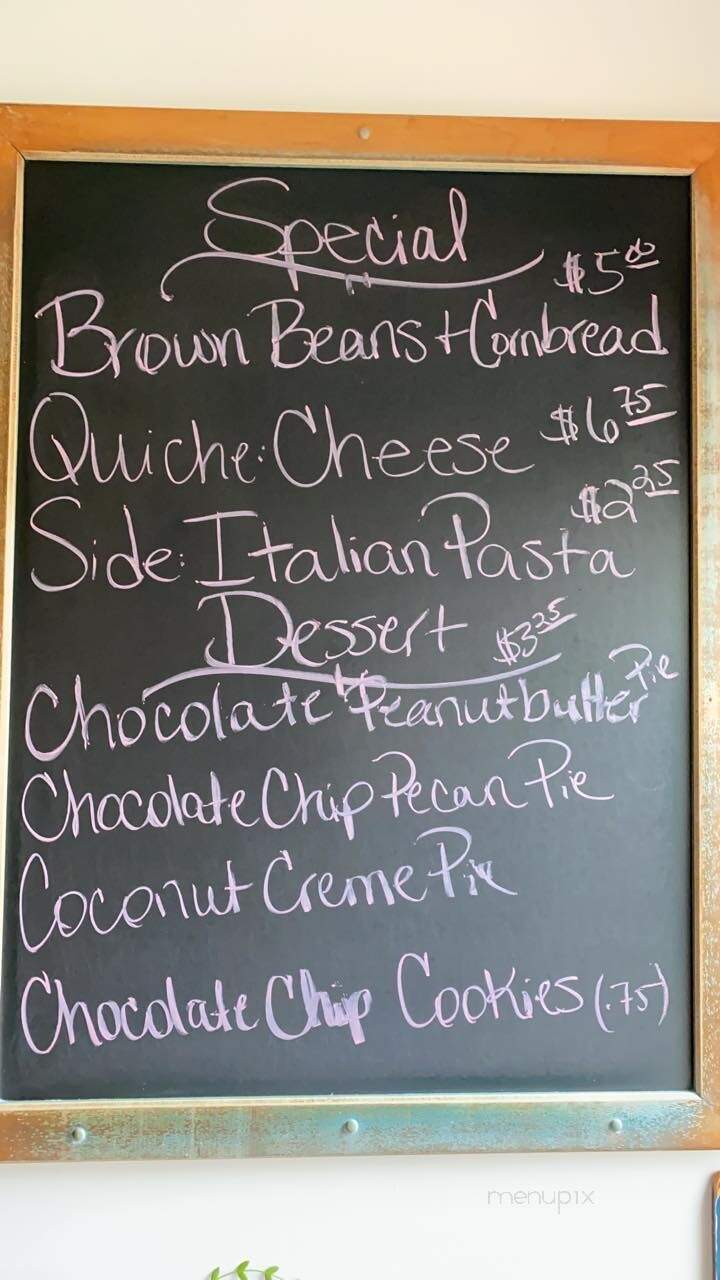 Special
$5.00
Brown Beans + Cornbread
Quiche: Cheese $6.75
Side: Italian Pasta $2.25
Dessert $3.25
Chocolate Peanutbutter Pie
Chocolate Chip Pecan Pie
Coconut Creme Pie
Chocolate Chip Cookies (.75)
menupix